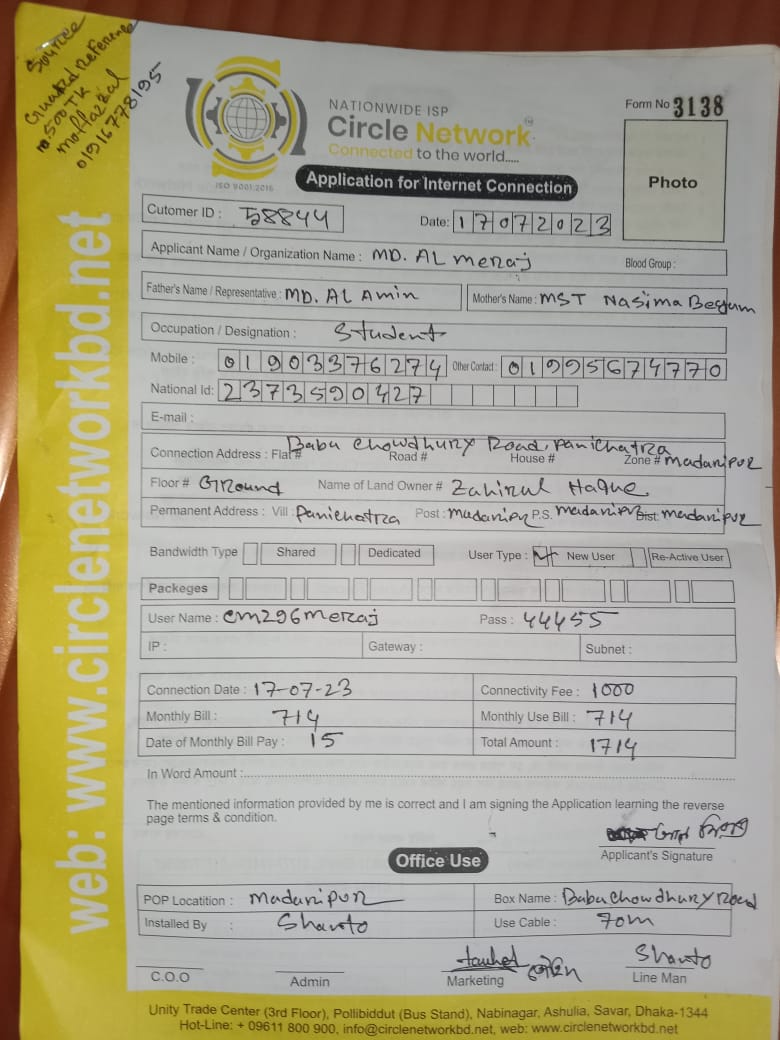 Source
Guard Reference
500 TK
moffazzal
01916778195
NATIONWIDE ISP
Circle Network
Connected to the world.....
ISO 9001:2015
Form No 3138
Photo
Application for Internet Connection
Cutomer ID : 58844 Date: 17072023
Applicant Name / Organization Name : MD. AL meraj Blood Group :
Father's Name / Representative : MD. AL Amin Mother's Name : MST Nasima Begum
Occupation / Designation : Student
Mobile : 01903376274 Other Contact : 01995674770
National Id: 2373590427
E-mail :
Connection Address : Flat # Babu Chowdhury Road, Panichatra Road # House # Zone # madaripur
Floor # Ground Name of Land Owner # Zahirul Haque
Permanent Address : Vill : Panichatra Post : madaripur P.S. madaripur Dist: madaripur
Bandwidth Type Shared Dedicated User Type : New User Re-Active User
Packeges
User Name : cm296meraj Pass : 44455
IP : Gateway : Subnet :
Connection Date : 17-07-23 Connectivity Fee : 1000
Monthly Bill : 714 Monthly Use Bill : 714
Date of Monthly Bill Pay : 15 Total Amount : 1714
In Word Amount :
The mentioned information provided by me is correct and I am signing the Application learning the reverse
page terms & condition.
Applicant's Signature
Office Use
POP Locatition : madaripur Box Name : Babu Chowdhury Road
Installed By : Shanto Use Cable : 70m
Shanto
C.O.O Admin Marketing Line Man
Unity Trade Center (3rd Floor), Pollibiddut (Bus Stand), Nabinagar, Ashulia, Savar, Dhaka-1344
Hot-Line: + 09611 800 900, info@circlenetworkbd.net, web: www.circlenetworkbd.net
web: www.circlenetworkbd.net